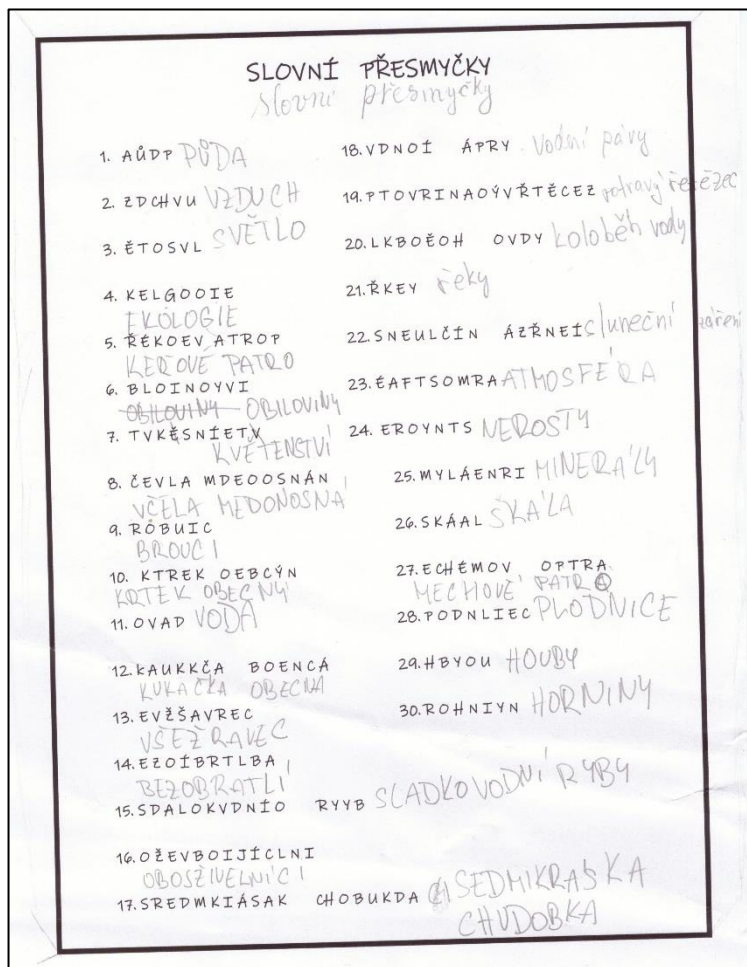 SLOVNÍ PŘESMYČKY
slovní přesmyčky
1. AŮDP PŮDA
2. ZDCHVU VZDUCH
3. ĚTOSVL SVĚTLO
4. KELGOOIE
EKOLOGIE
5. ŘÉKOEV ATROP
KEŘOVÉ PATRO
6. BLOINOYVI
OBILOVINY OBILOVINY
7. TVKĚSNÍETV
KVĚTENSTVÍ
8. ČEVLA MDEOOSNÁN
VČELA MEDONOSNÁ
9. RÓBUIC
BROUCI
10. KTREK OEBCÝN
KRTEK OBECNÝ
11. OVAD VODA
12. KAUKKČA BOENCÁ
KUKAČKA OBECNÁ
13. EVŽŠAVREC
VŠEŽRAVEC
14. EZOÍBRTLBA
BEZOBRATLÍ
15. SDALOKVDNÍO RYYB SLADKOVODNÍ RYBY
16. OŽEVBOIJÍCLNI
OBOSŽIVELNÍCI
17. SREDMKIÁSAK CHOBUKDA SEDMIKRASKA
CHUDOBKA
18. VDNOÍ ÁPRY vodní páry
19. PTOVRINAOÝVŘTĚCEZ potravý řetězec
20. LKBOĚOH OVDY koloběh vody
21. ŘKEY řeky
22. SNEULČÍN ÁZŘNEÍ sluneční záření
23. ÉAFTSOMRA ATMOSFÉRA
24. EROYNTS NEROSTY
25. MYLÁENRI MINERÁLY
26. SKÁAL SKÁLA
27. ECHÉMOV OPTRA
MECHOVÉ PATRO
28. PODNLIEC PLODNICE
29. HBYOU HOUBY
30. ROHNIYN HORNINY